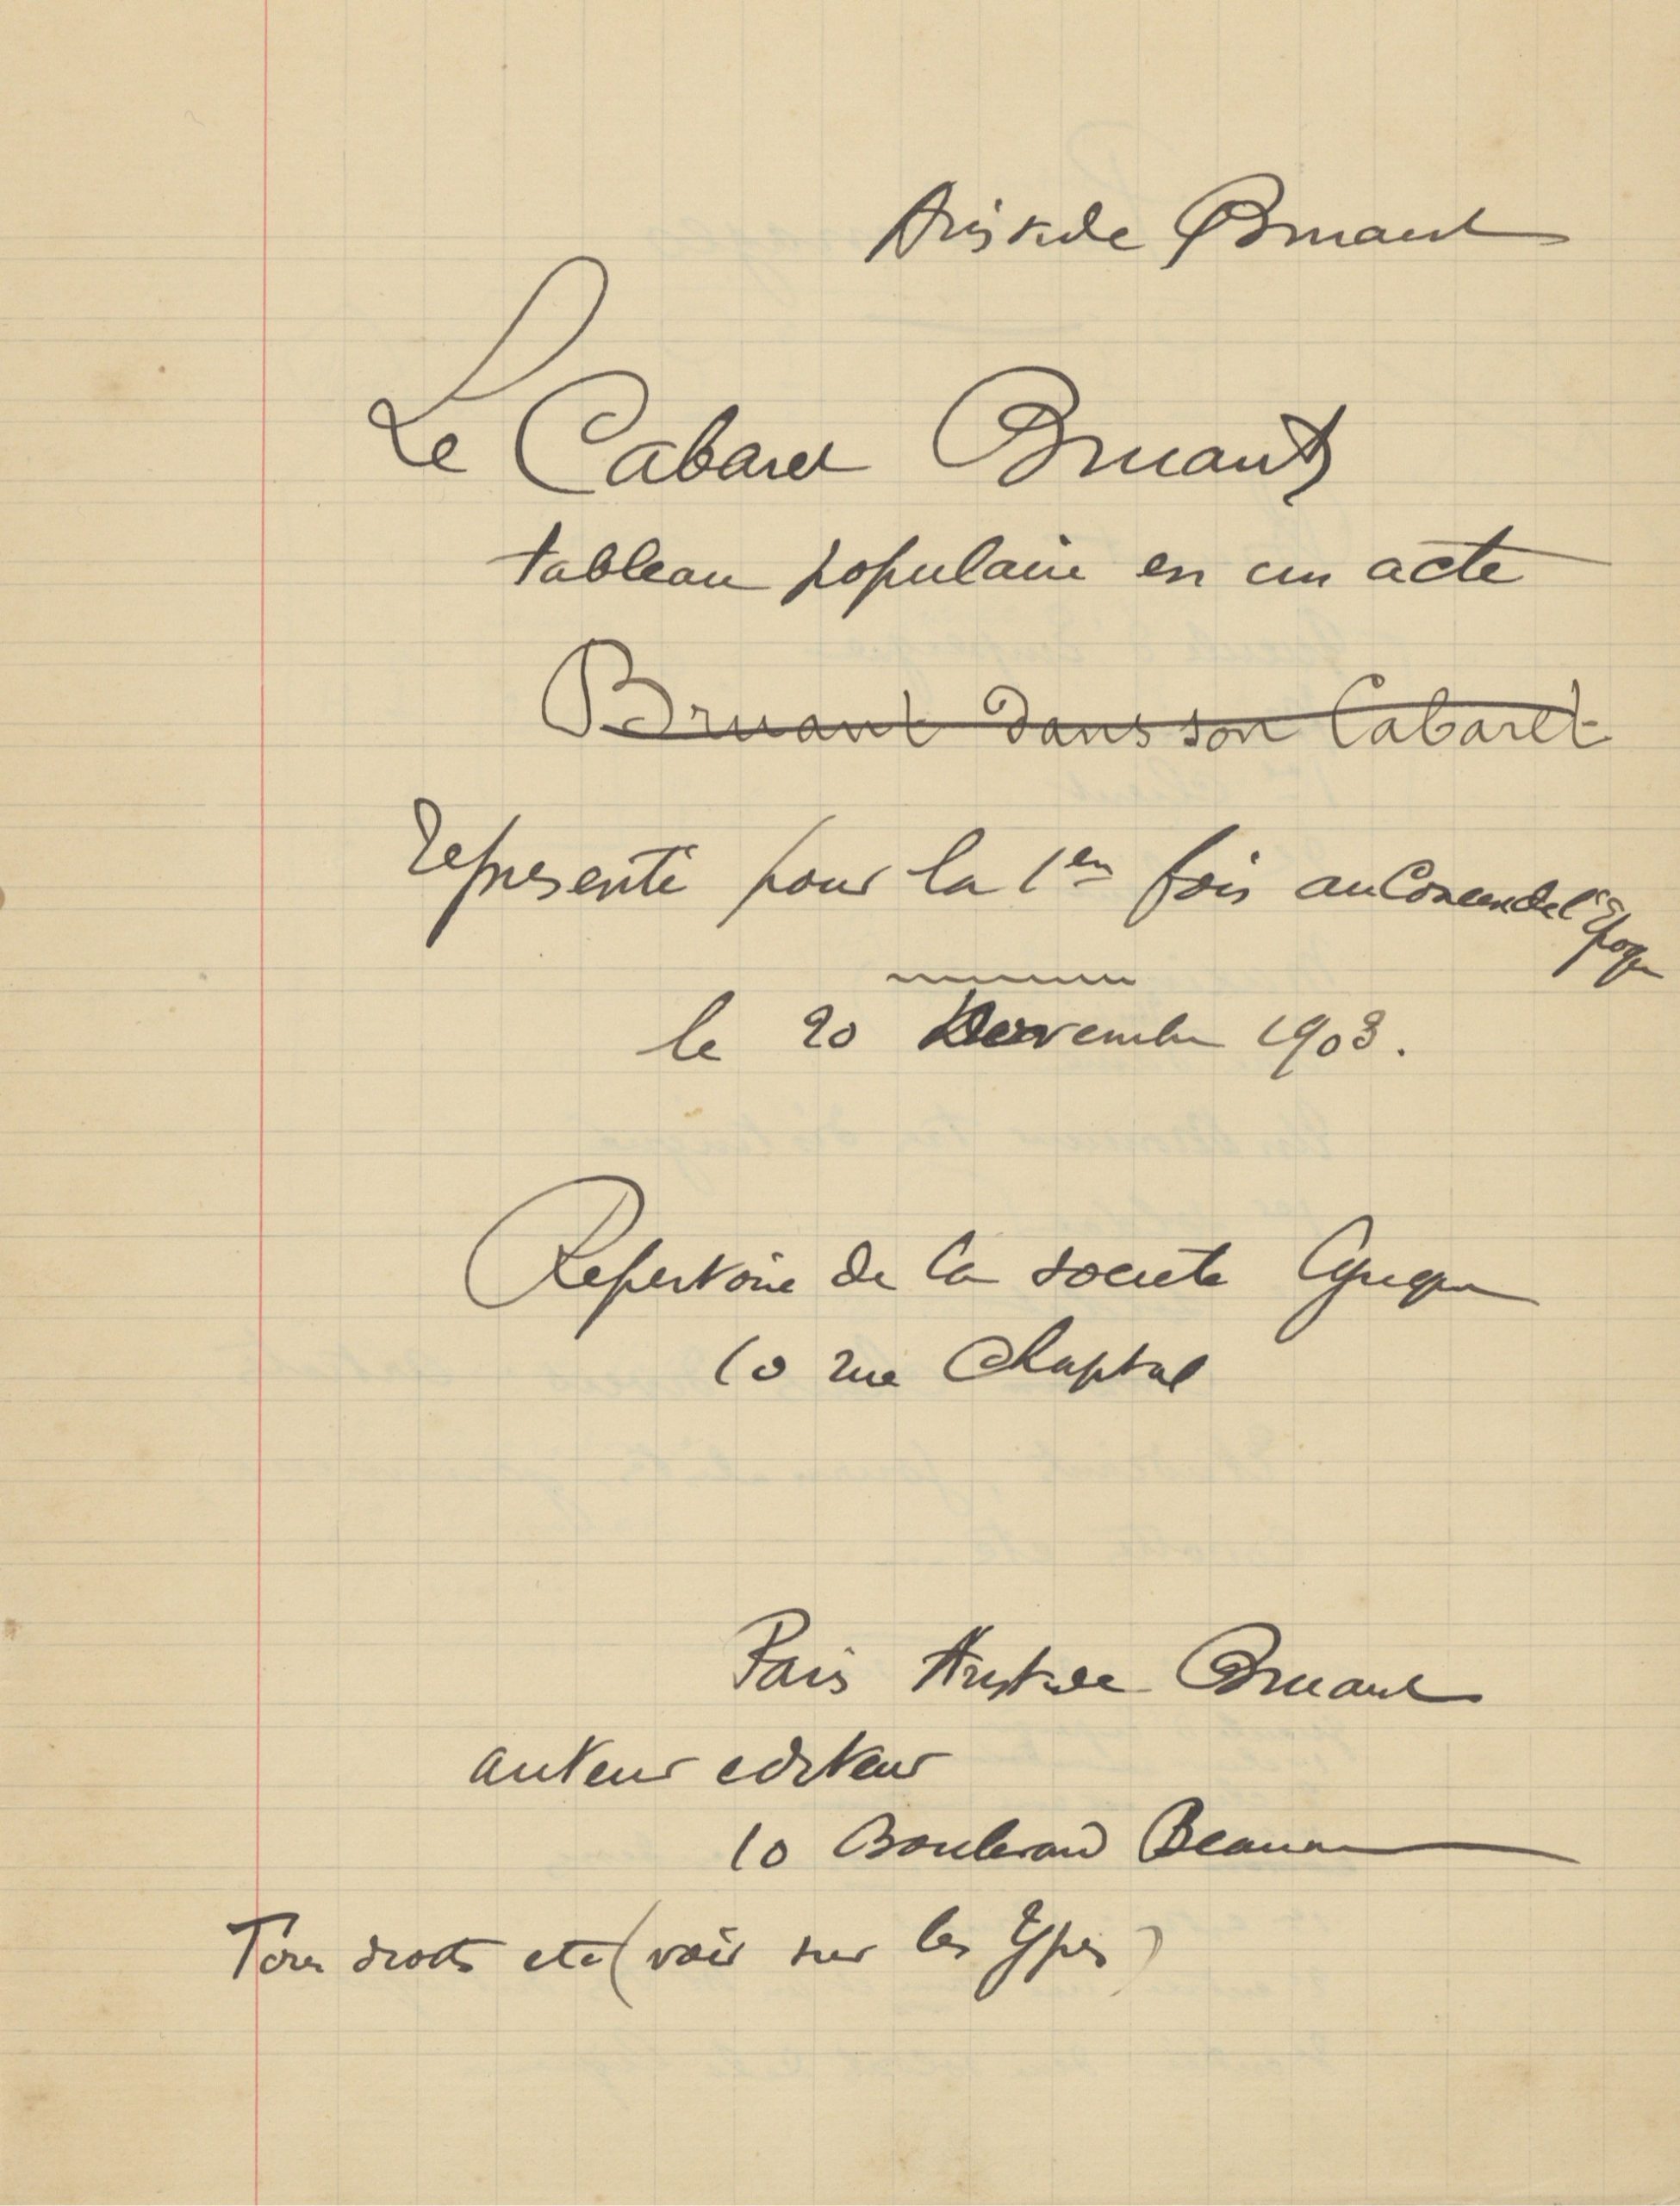 Aristide Bruant
Le Cabaret Bruant
tableau populaire en un acte
Bruant dans son Cabaret
représenté pour la 1ere fois au Concert de l'Époque
le 20 Novembre 1903.
Repertoire de la societe lyrique
10 rue Chaptal
Paris Aristide Bruant
auteur editeur
10 Boulevard Beaum
Tous droits etc (voir sur les types)